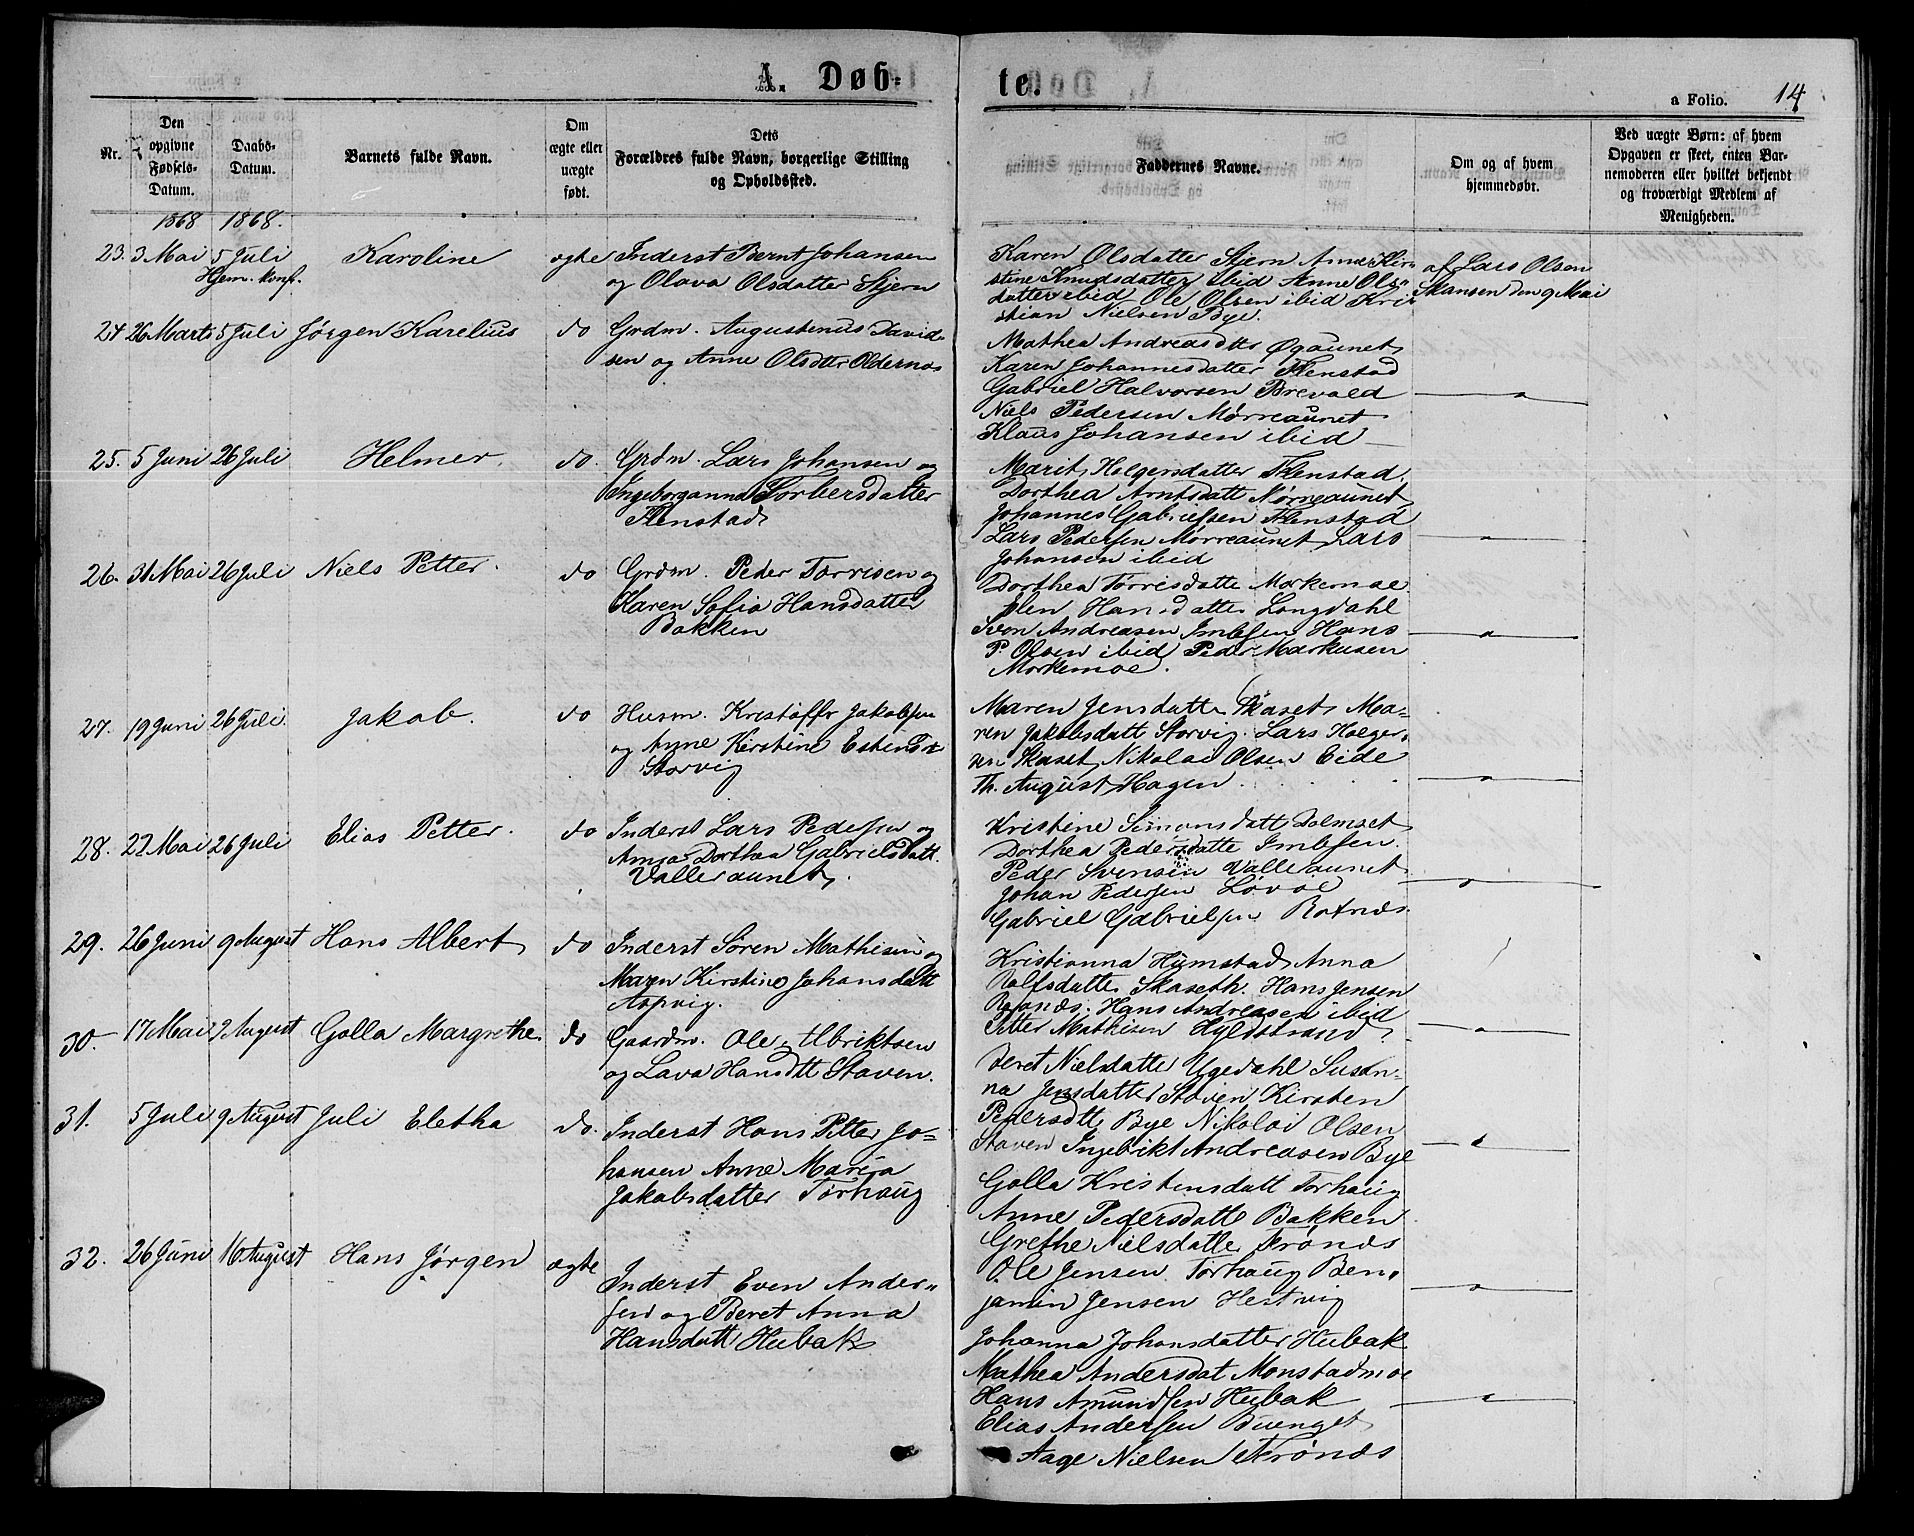 A. Døb-
te.
a Folio. 14
Nr.
Den opgivne Fødsels-Datum.
Daabs-Datum.
Barnets fulde Navn.
Om ægte eller uægte født.
Dets Forældres fulde Navn, borgerlige Stilling og Opholdssted.
Faddernes Navne.
Om og af hvem hjemmedøbt.
Ved uægte Børn: af hvem Opgaven er skeet, enten Barnemoderen eller hvilket bekjendt og troværdigt Medlem af Menigheden.
1868 1868.
23. 3 Mai 5 Juli Karoline ægte Inderst Bernt Johansen
Hjem. konf. og Olava Olsdatter Stjern
Karen Olsdatter Stjern Anne Kir-
stine Knudsdatter ibid Anne Ols-
datter ibid Ole Olsen ibid Kri-
stian Nielsen Bye.
af Lars Olsen
Skansen den 9 Mai
24 26 Marts 5 Juli Jørgen Karelius do Grdm. Augustenus David-
sen og Anne Olsdtter Oldernæs
Mathea Andreasdtter Øgaunet
Karen Johannesdatter Flenstad
Gabriel Halvorsen Brevold
Niels Pedersen Mørreaunet
Klaus Johansen ibid
25. 5 Juni 26 Juli Helmer. do. Grdm. Lars Johansen og
Ingeborganna Torbersdatter
Flenstad
Marit Holgersdatter Flenstad
Dorthea Arntsdatt Mørreaunet
Johannes Gabrielsen Flenstad
Lars Pedersen Mørreaunet Lars
Johansen ibid
26. 31 Mai 26 Juli Niels Petter. do Grdm. Peder Tørrisen og
Karen Sofia Hansdatter
Bakken
Dorthea Tørrisdatte Morkemoe
Elen Hansdatter Langdahl
Sven Andreasen Imlesen Hans
P. Olsen ibid Peder Markusen
Morkemoe.
27. 19 Juni 26 Juli. Jakob. do Husm. Kristoffr Jakobsen
og Anne Kirstine Estensdt
Storvig
Maren Jensdatte Skaset Ma-
ren Jakobsdatt Storvig. Lars Holger-
sen Skaset Nikolai Olsen Eide
Th. August Hagen
28. 22 Mai 26 Juli Elias Petter. do Inderst Lars Pedersen og
Anna Dorthea Gabrielsdatt.
Valleraunet.
Kristine Simonsdatt Dolmset
Dorthea Pedersdatte Imlesen.
Peder Svensen Valleraunet
Johan Pedersen Løvøe
Gabriel Gabrielsen Rotnæs.
29. 26 Juni 9 August Hans Albert do Inderst Søren Mathisen og
Maren Kirstine Johansdatt
Aspvig.
Kristianna Humstad Anna
Rolfsdatte Skaseth. Hans Jensen
Rotnæs. Hans Andreasen ibid
Petter Mathisen Hyldstrand
30. 17 Mai 9 August Golla Margrethe. do Gaardm. Ole Ulriktsen
og Lava Hansdtt Staven.
Beret Nielsdatte Ugedahl Susan-
na Jensdatter Staven Kirsten
Pedersdtt Bye Nikolai Olsen
Staven Ingebrikt Andreasen Bye
31. 5 Juli 9 August Juli Eletha do. Inderst Hans Petter Jo-
hansen Anne Maria
Jakobsdatter Tørhaug
Golla Kristensdatt Torhaug
Anne Pedersdatte Bakken
Grethe Nielsdatte Frønæs
Ole Jensen Torhaug Ben-
jamin Jensen Hestvig
32. 26 Juni 16 August Hans Jørgen ægte Inderst Even Ander-
sen og Beret Anna
Hansdatt Hubak
Johanna Johansdatter Hubak
Mathea Andersdat Monstadmoe
Hans Amundsen Hubak
Elias Andersen Buenget
Aage Nielsen Frønæs